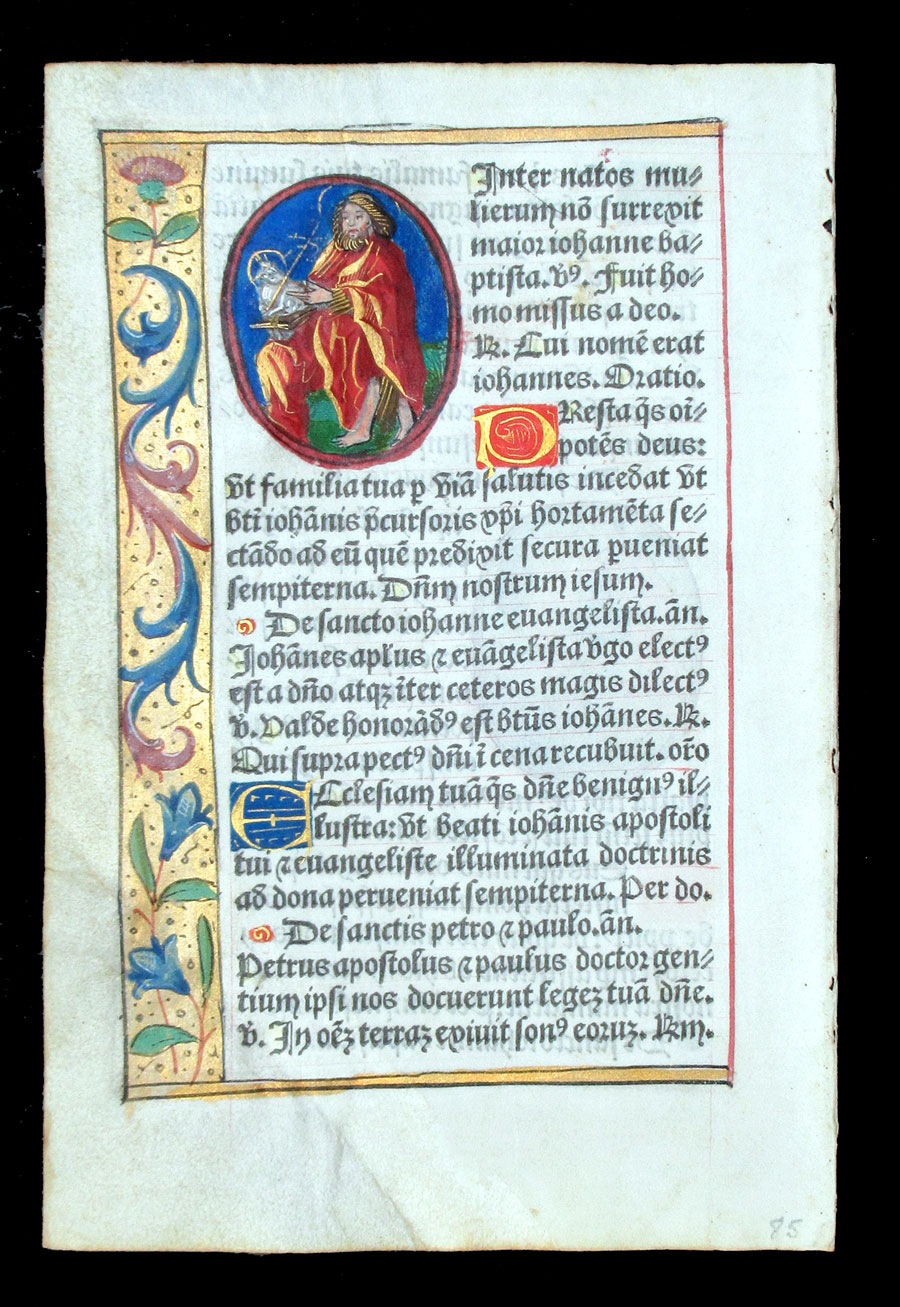 Inter natos mu⸗
lierum nõ surrexit
maior iohanne ba⸗
ptista. vꝰ. Fuit ho⸗
mo missus a deo.
℞. Cui nomẽ erat
iohannes. Oratio.
PResta q̃s oĩ⸗
potẽs deus:
vt familia tua ꝑ viã salutis incedat vt
bti iohãnis p̃cursoris xp̃i hortamẽta se⸗
ctãdo ad eũ quẽ predixit secura ꝑueniat
sempiterna. Dñm nostrum iesum.
De sancto iohanne euangelista. añ.
Johãnes aplus ⁊ euãgelista vgo electꝰ
est a dño atqꝫ ĩter ceteros magis dilectꝰ
v. Valde honorãdꝰ est btũs iohãnes. ℞.
Qui supra pectꝰ dñi ĩ cena recubuit. or̃o
ECclesiam tuã q̃s dñe benignꝰ il⸗
lustra: vt beati iohãnis apostoli
tui ⁊ euangeliste illuminata doctrinis
ad dona perueniat sempiterna. Per do.
De sanctis petro ⁊ paulo. añ.
Petrus apostolus ⁊ paulus doctor gen⸗
tium ipsi nos docuerunt legeꝫ tuã dñe.
v. In oẽꝫ terraꝫ exiuit sonꝰ eoruꝫ. ℞m.
85